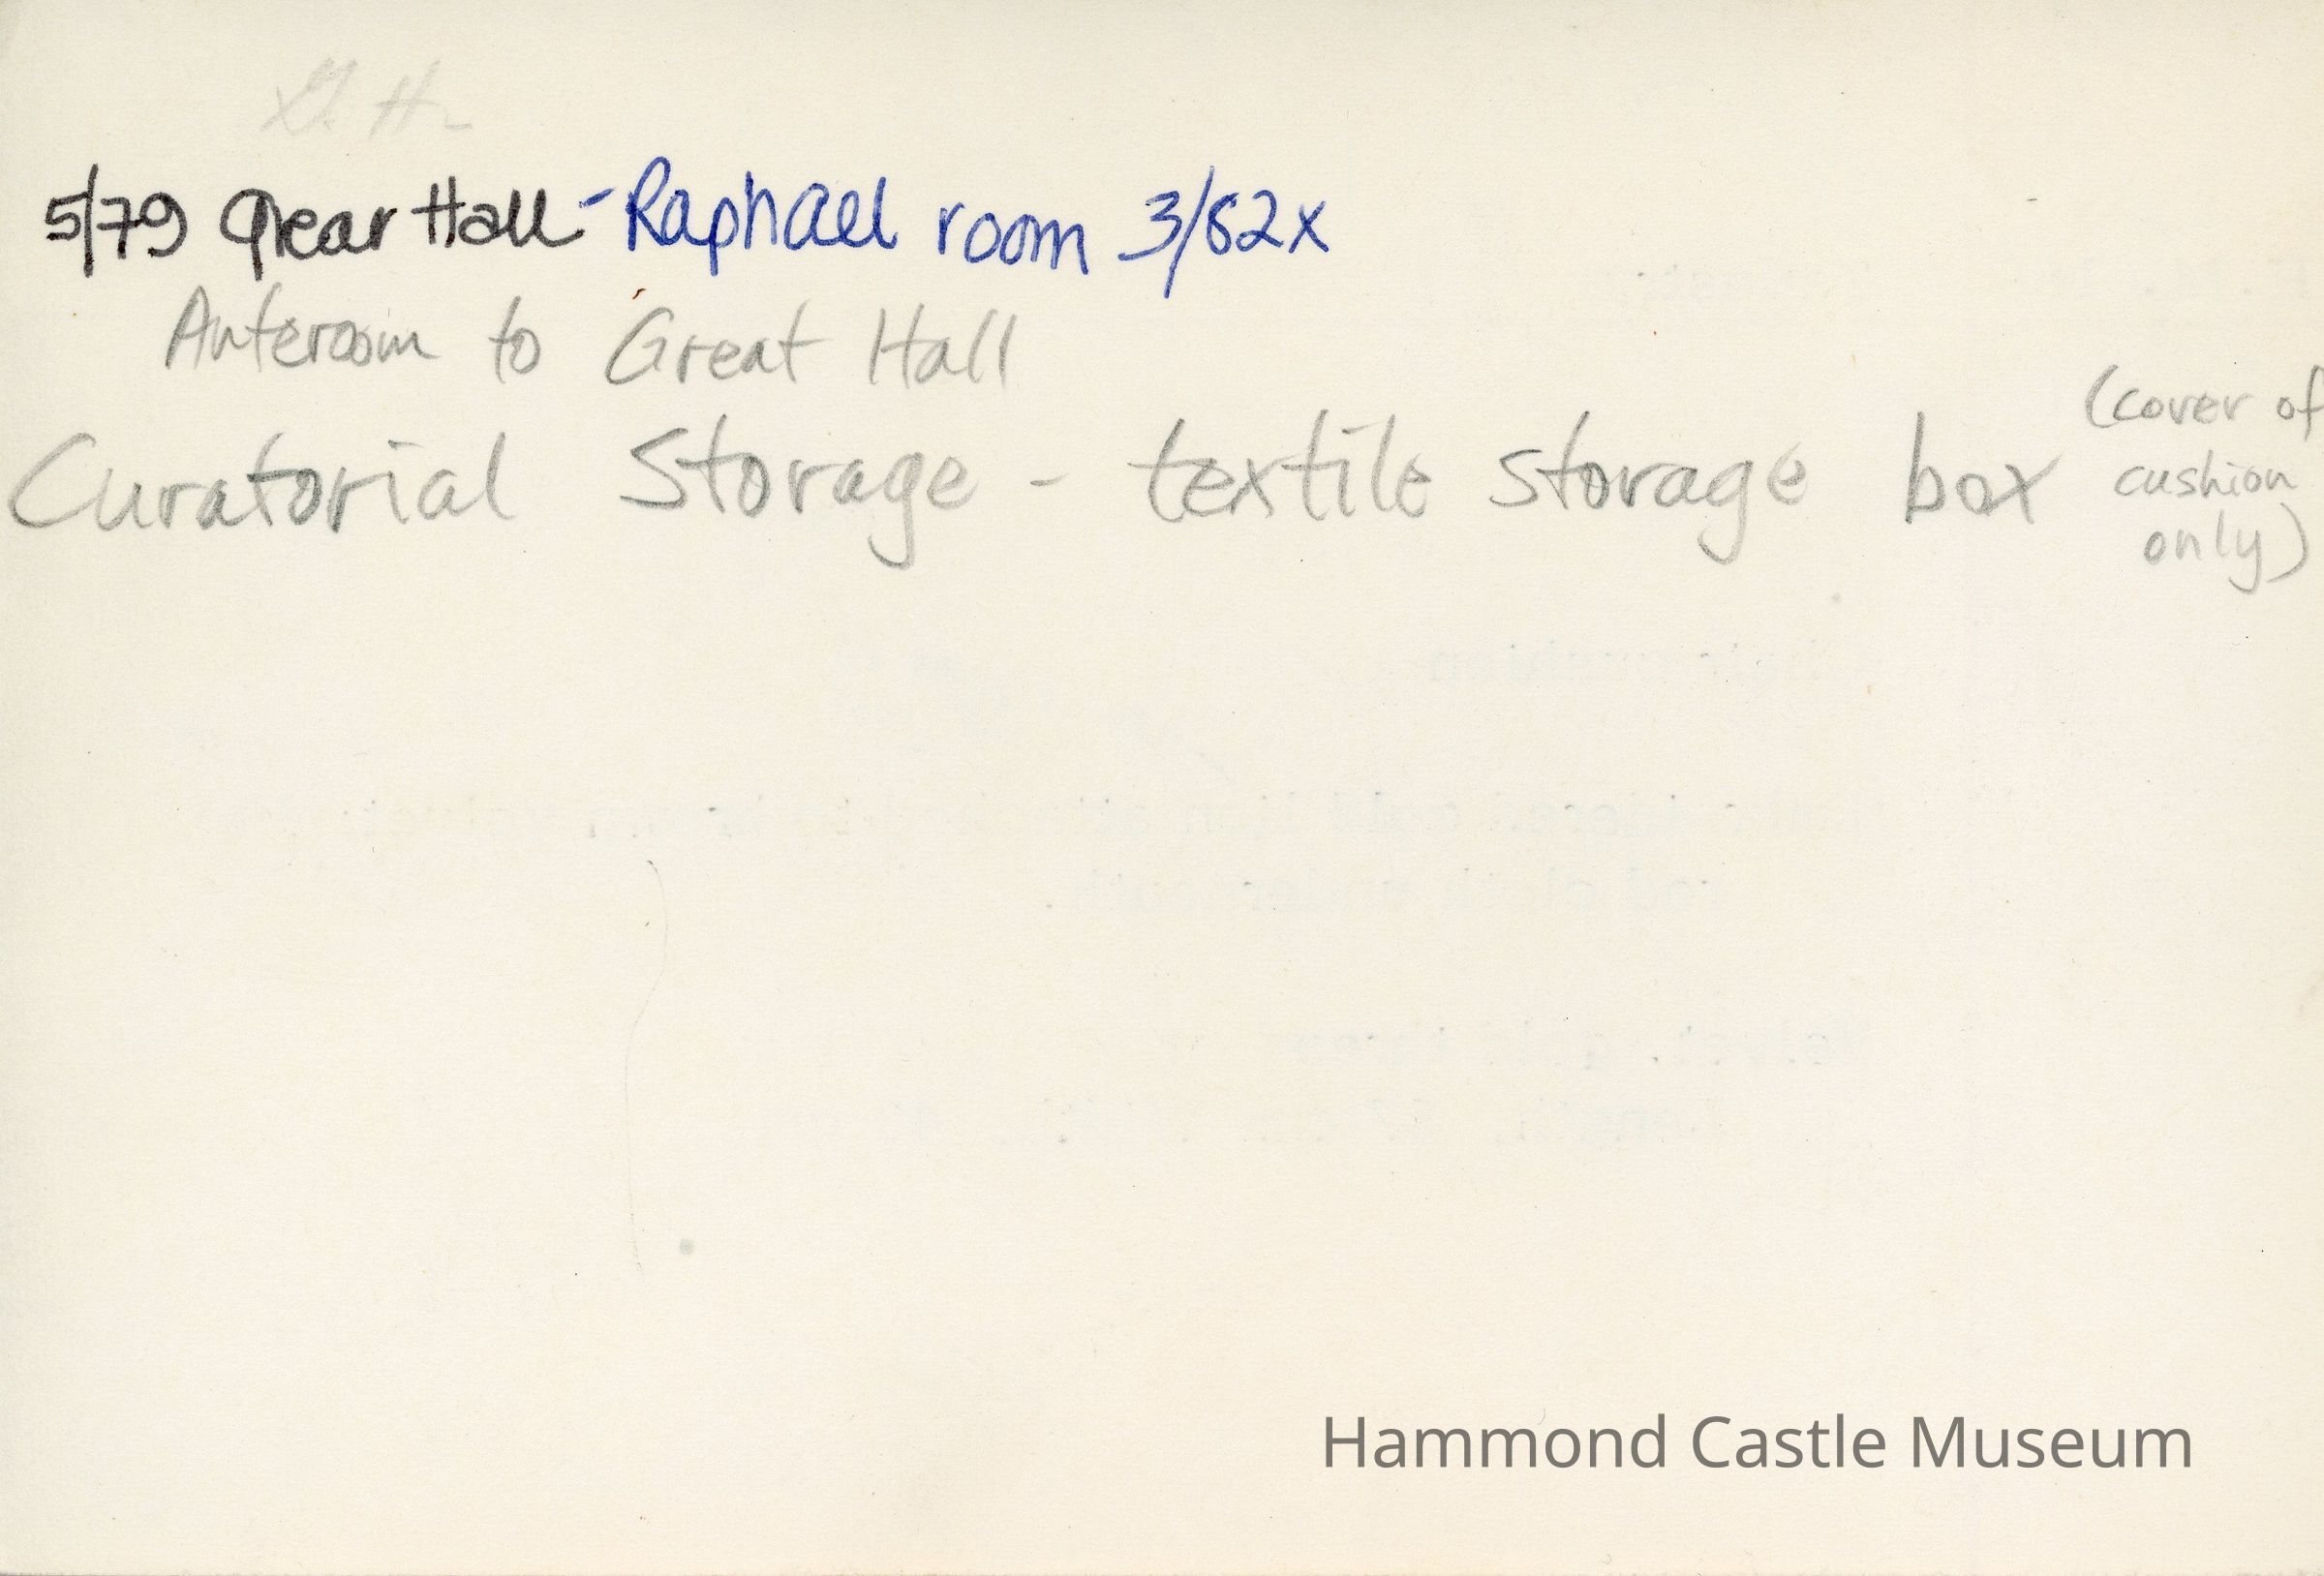 G. H.
5/79 Grear Hall - Raphael room 3/82x
Anteroom to Great Hall
Curatorial Storage - textile storage box (cover of
cushion
only)
Hammond Castle Museum